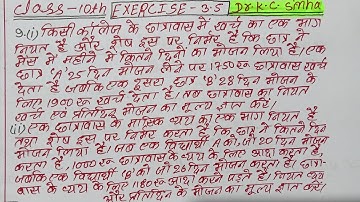 class-10th EXERCISE-3.5 Dr. K.C. Sinha
9.(i) किसी कॉलेज के छात्रावास में खर्च का एक भाग
नियत है और शेष इस पर निर्भर है कि छात्र ने
मेस में महीने में कितने दिनों का भोजन लिया है। एक
छात्र 'A' 25 दिन भोजन लेने पर 1750 रू० खर्च
देता है जबकि एक दूसरा छात्र 'B' 28 दिन भोजन के
लिए 1900 रू० खर्च देता है। तब छात्रावास का नियत
खर्च एवं प्रतिदिन भोजन का मूल्य ज्ञात करें।
(ii) एक छात्रावास के मासिक व्यय का एक भाग नियत है
तथा शेष इस पर निर्भर करता है कि छात्र ने कितने दिन
भोजन लिया है। जब एक विद्यार्थी A को जो 20 दिन भोजन
करता है, 1000 रू० छात्रावास के व्यय के लिए अदा करता है,
जबकि एक विद्यार्थी 'B' को जो 26 दिन भोजन करता है। छात्रा-
वास के व्यय के लिए 1180 रू० अदा करने पड़ते हैं। नियत व्यय
और प्रतिदिन के भोजन का मूल्य ज्ञात करें।